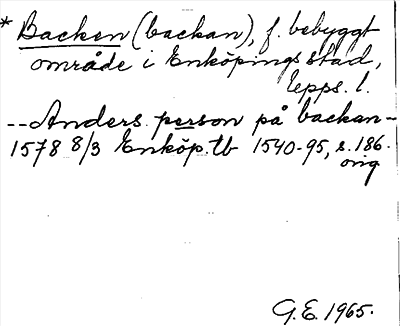 * Backen (backan), f. bebyggt
område i Enköpings stad,
Upps. l.
-- Anders person på backan --
1578 8/3 Enköp. tb 1540-95, s. 186.
orig
G.E. 1965.